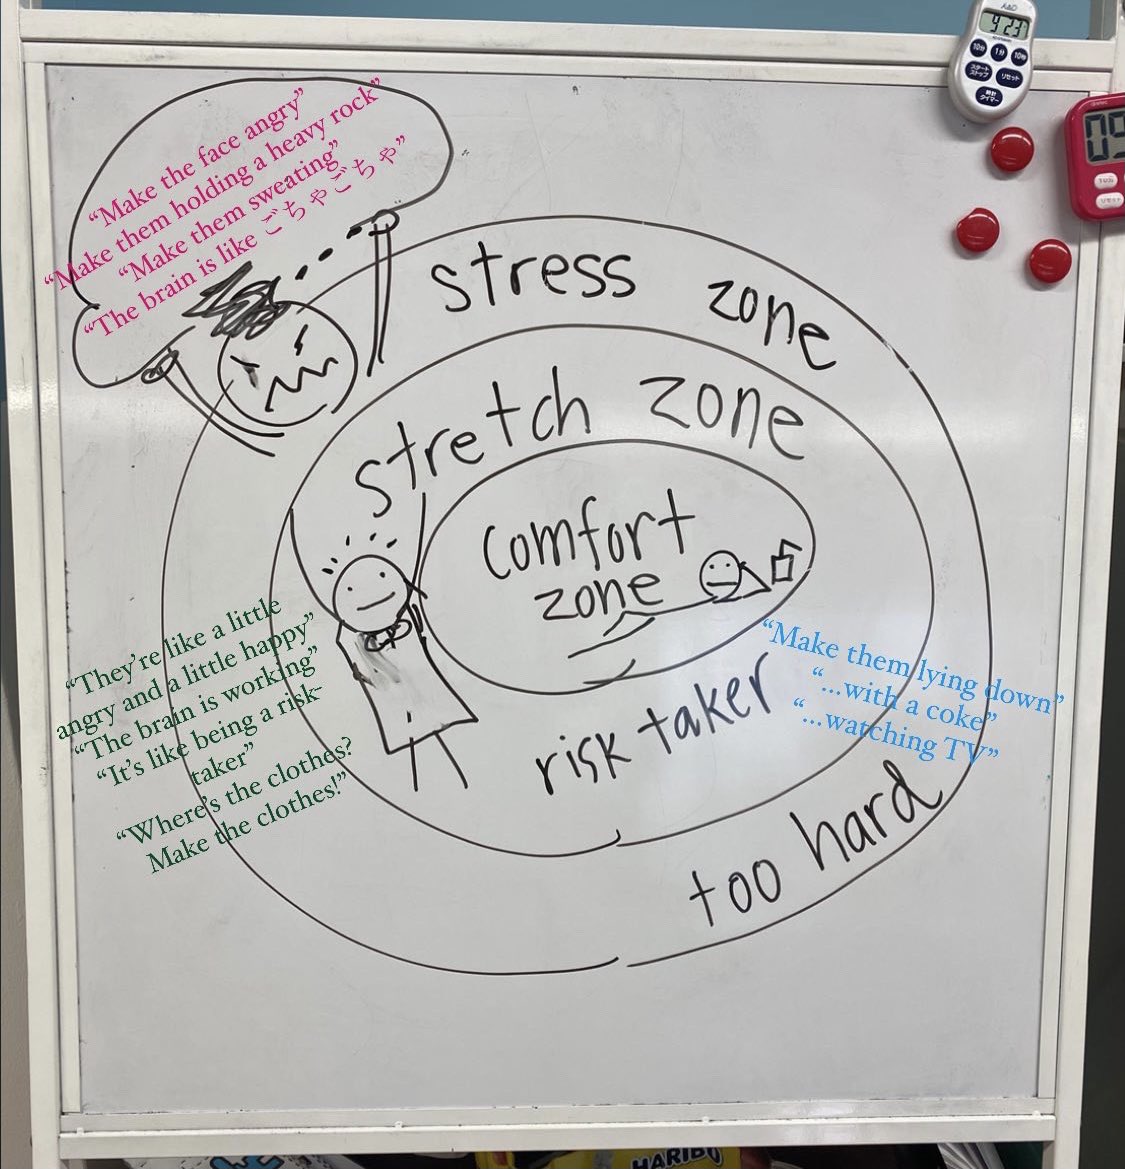 A&D
9 23
10分
1分
10秒
スタート
ストップ
リセット
時計
タイマー
09
リセット
“Make the face angry”
“Make them holding a heavy rock”
“Make them sweating”
“The brain is like ごちゃごちゃ”
stress zone
stretch zone
comfort
zone
“They’re like a little
angry and a little happy”
“The brain is working”
“It’s like being a risk-
taker”
“Where’s the clothes?
Make the clothes!”
“Make them lying down”
“...with a coke”
“...watching TV”
risk taker
too hard
HARIBO